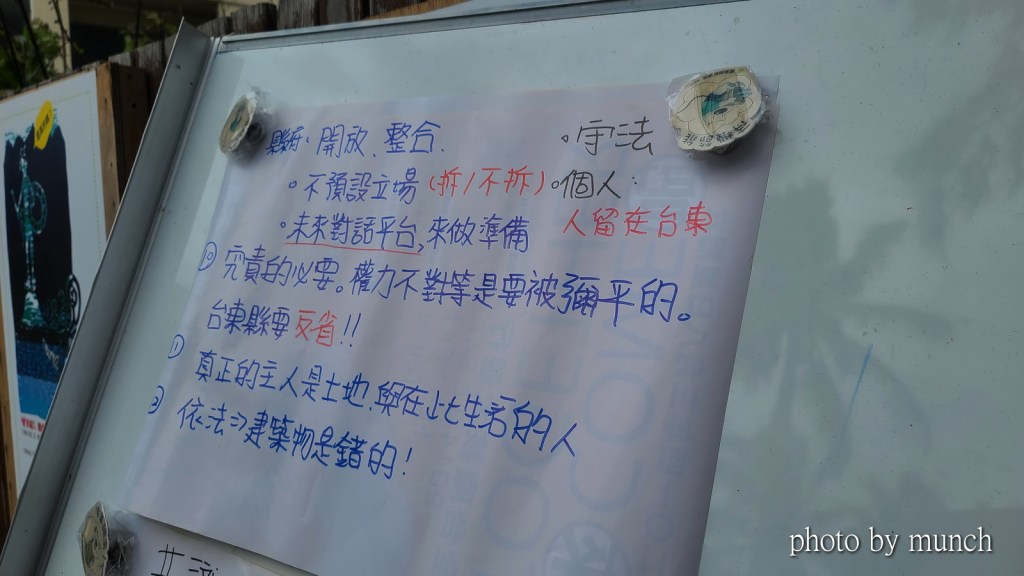 縣府：開放、整合、
。守法
。不預設立場（拆/不拆）
。個人：
。未來對話平台,來做準備
人留在台東
② 究責的必要。權力不對等是要被彌平的。
台東縣要反省!!
① 真正的主人是土地、與在此生活的人
③ 依法⇒建築物是錯的!
共識
photo by munch